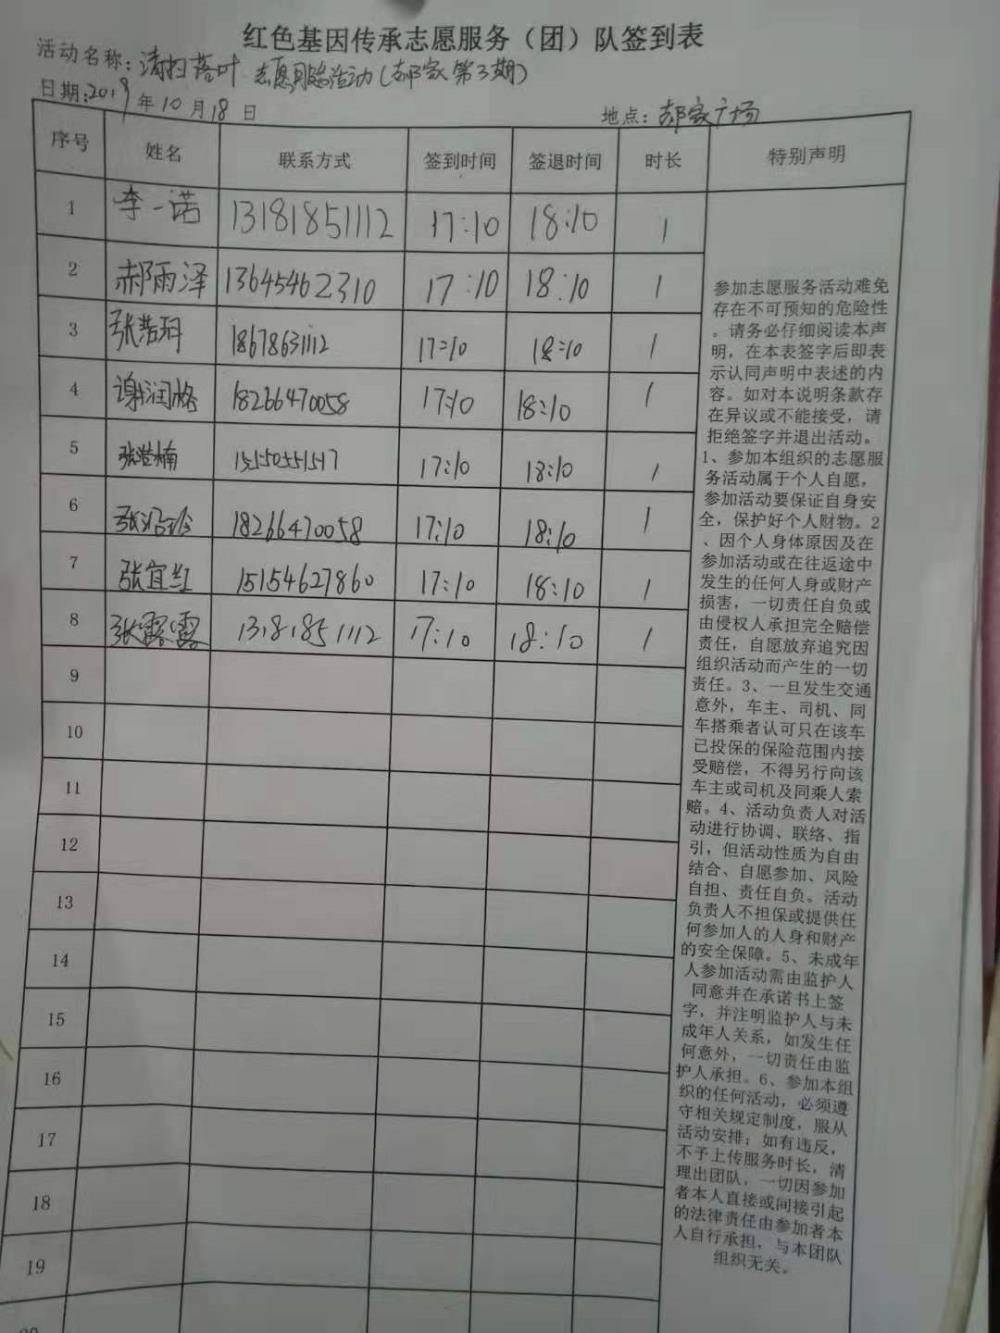 红色基因传承志愿服务（团）队签到表
活动名称：清扫落叶 志愿服务活动（郝家第3期）
日期：2019年10月18日 地点：郝家广场
序号 姓名 联系方式 签到时间 签退时间 时长 特别声明
1 李一诺 13181851112 17:10 18:10 1
2 郝雨泽 13645462310 17:10 18:10 1
3 张浩 18678631112 17:10 18:10 1
4 谢润格 18266470058 17:10 18:10 1
5 张浩楠 17:10 18:10 1
6 张 18266470058 17:10 18:10 1
7 张宜红 15154627860 17:10 18:10 1
8 张露露 13181851112 17:10 18:10 1
9
10
11
12
13
14
15
16
17
18
19
参加志愿服务活动难免
存在不可预知的危险性
。请务必仔细阅读本声
明，在本表签字后即表
示认同声明中表述的内
容。如对本说明条款存
在异议或不能接受，请
拒绝签字并退出活动。
1、参加本组织的志愿服
务活动属于个人自愿，
参加活动要保证自身安
全，保护好个人财物。2
、因个人身体原因及在
参加活动或在往返途中
发生的任何人身或财产
损害，一切责任自负或
由侵权人承担完全赔偿
责任，自愿放弃追究因
组织活动而产生的一切
责任。3、一旦发生交通
意外，车主、司机、同
车搭乘者认可只在该车
已投保的保险范围内接
受赔偿，不得另行向该
车主或司机及同乘人索
赔。4、活动负责人对活
动进行协调、联络、指
引，但活动性质为自由
结合、自愿参加、风险
自担、责任自负。活动
负责人不担保或提供任
何参加人的人身和财产
的安全保障。5、未成年
人参加活动需由监护人
同意并在承诺书上签
字，并注明监护人与未
成年人关系，如发生任
何意外，一切责任由监
护人承担。6、参加本组
织的任何活动，必须遵
守相关规定制度，服从
活动安排；如有违反，
不予上传服务时长，清
理出团队，一切因参加
者本人直接或间接引起
的法律责任由参加者本
人自行承担，与本团队
组织无关。